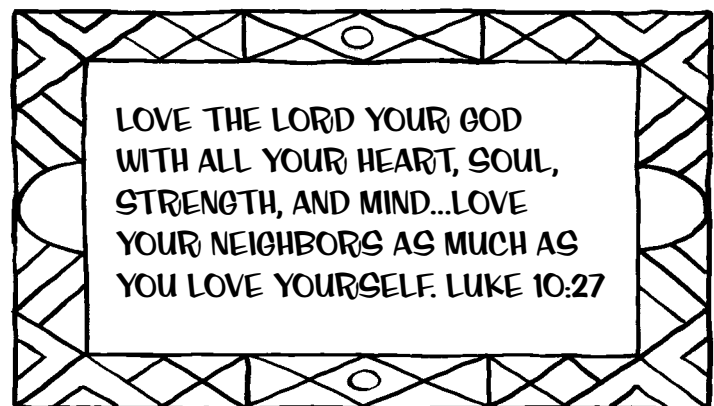 LOVE THE LORD YOUR GOD
WITH ALL YOUR HEART, SOUL,
STRENGTH, AND MIND...LOVE
YOUR NEIGHBORS AS MUCH AS
YOU LOVE YOURSELF. LUKE 10:27